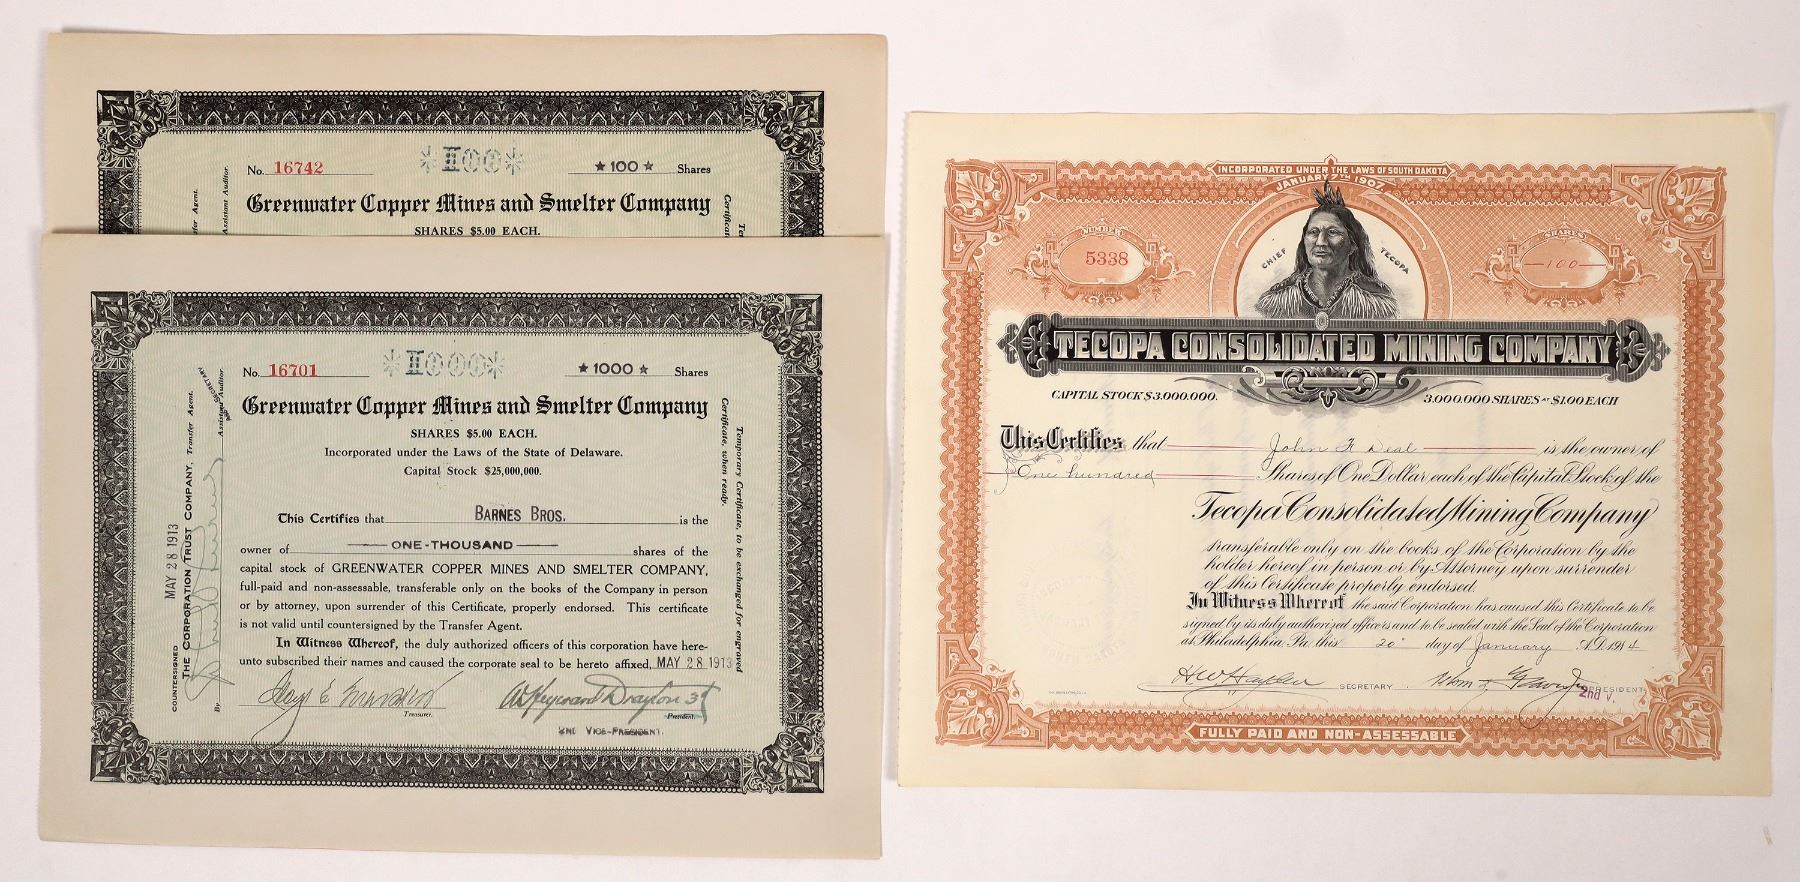 No. 16742 *100* ★100★ Shares
Greenwater Copper Mines and Smelter Company
SHARES $5.00 EACH.
Transfer Agent.
Assistant Auditor
No. 16701 *1000* ★1000★ Shares
Greenwater Copper Mines and Smelter Company
SHARES $5.00 EACH.
Incorporated under the Laws of the State of Delaware.
Capital Stock $25,000,000.
This Certifies that BARNES BROS. is the
owner of ONE-THOUSAND shares of the
capital stock of GREENWATER COPPER MINES AND SMELTER COMPANY,
full-paid and non-assessable, transferable only on the books of the Company in person
or by attorney, upon surrender of this Certificate, properly endorsed. This certificate
is not valid until countersigned by the Transfer Agent.
In Witness Whereof, the duly authorized officers of this corporation have here-
unto subscribed their names and caused the corporate seal to be hereto affixed, MAY 28 1913
Treasurer.
A Heyward Drayton 3d
President.
2ND VICE-PRESIDENT.
COUNTERSIGNED MAY 28 1913
THE CORPORATION TRUST COMPANY, Transfer Agent.
By Assistant Auditor
SECRETARY
Temporary Certificate, to be exchanged for engraved
Certificate, when ready.
INCORPORATED UNDER THE LAWS OF SOUTH DAKOTA
JANUARY 7TH 1907
NUMBER
5338
CHIEF TECOPA
SHARES
100
TECOPA CONSOLIDATED MINING COMPANY
CAPITAL STOCK $3.000.000. 3.000.000 SHARES AT $1.00 EACH
This Certifies that John F Deal is the owner of
One hundred Shares of One Dollar each of the Capital Stock of the
Tecopa Consolidated Mining Company
transferable only on the books of the Corporation by the
holder hereof in person or by Attorney upon surrender
of this Certificate properly endorsed.
In Witness Whereof the said Corporation has caused this Certificate to be
signed by its duly authorized officers and to be sealed with the Seal of the Corporation
at Philadelphia. Pa. this 20" day of January A.D. 1914
SECRETARY PRESIDENT
2nd V.
FULLY PAID AND NON-ASSESSABLE